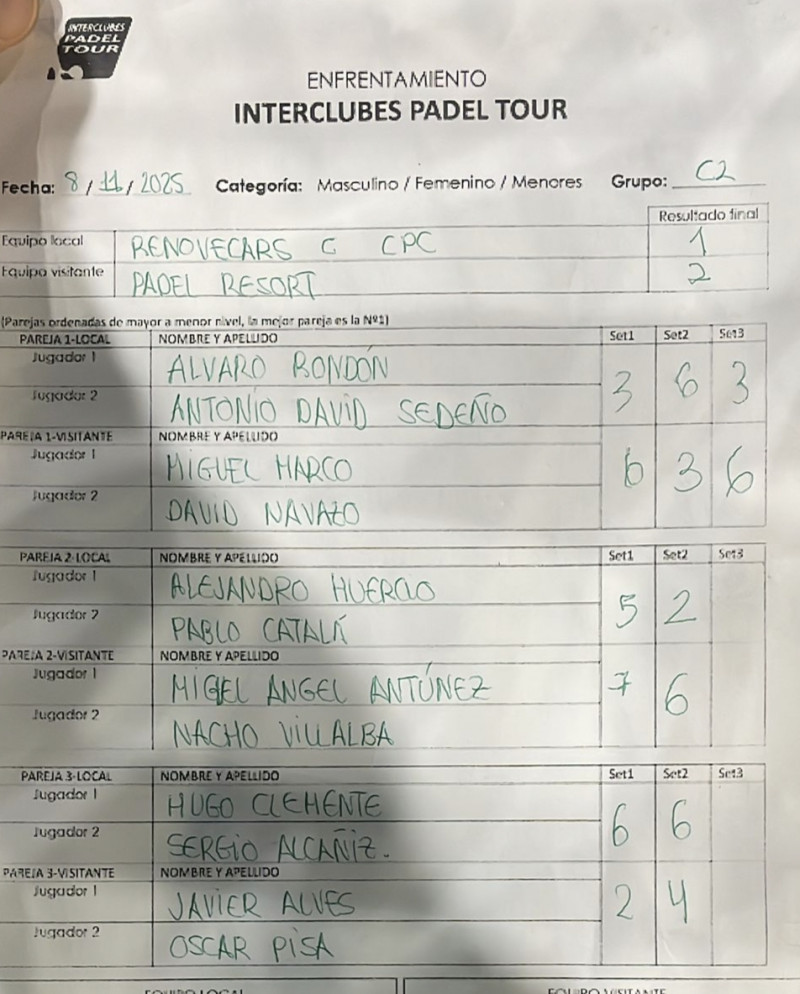 INTERCLUBES
PADEL
TOUR
ENFRENTAMIENTO
INTERCLUBES PADEL TOUR
Fecha: 8 / 11 / 2025 Categoría: Masculino / Femenino / Menores Grupo: C2
Resultado final
Equipo local RENOVECARS C CPC 1
Equipo visitante PADEL RESORT 2
(Parejas ordenadas de mayor a menor nivel, la mejor pareja es la Nº1)
PAREJA 1-LOCAL NOMBRE Y APELLIDO Set1 Set2 Set3
Jugador 1 ALVARO RONDÓN
3 6 3
Jugador 2 ANTONIO DAVID SEDEÑO
PAREJA 1-VISITANTE NOMBRE Y APELLIDO
Jugador 1 MIGUEL MARCO
6 3 6
Jugador 2 DAVID NAVAZO
PAREJA 2-LOCAL NOMBRE Y APELLIDO Set1 Set2 Set3
Jugador 1 ALEJANDRO HUERCIO
5 2
Jugador 2 PABLO CATALÁ
PAREJA 2-VISITANTE NOMBRE Y APELLIDO
Jugador 1 MIGEL ANGEL ANTÚNEZ
7 6
Jugador 2 NACHO VILLALBA
PAREJA 3-LOCAL NOMBRE Y APELLIDO Set1 Set2 Set3
Jugador 1 HUGO CLEMENTE
6 6
Jugador 2 SERGIO ALCAÑIZ.
PAREJA 3-VISITANTE NOMBRE Y APELLIDO
Jugador 1 JAVIER ALVES
2 4
Jugador 2 OSCAR PISA
EQUIPO LOCAL EQUIPO VISITANTE